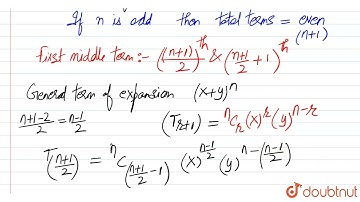 If n is odd then total terms = even
(n+1)
First middle term:- ((n+1)/2)^th & (n+1/2 + 1)^th
General term of expansion (x+y)^n
n+1-2/2 = n-1/2 (T_{r+1}) = ^nC_r (x)^r (y)^{n-r}
T_{(n+1/2)} = ^nC_{(n+1/2 -1)} (x)^{n-1/2} (y)^{n-(n-1/2)}
doubtnut